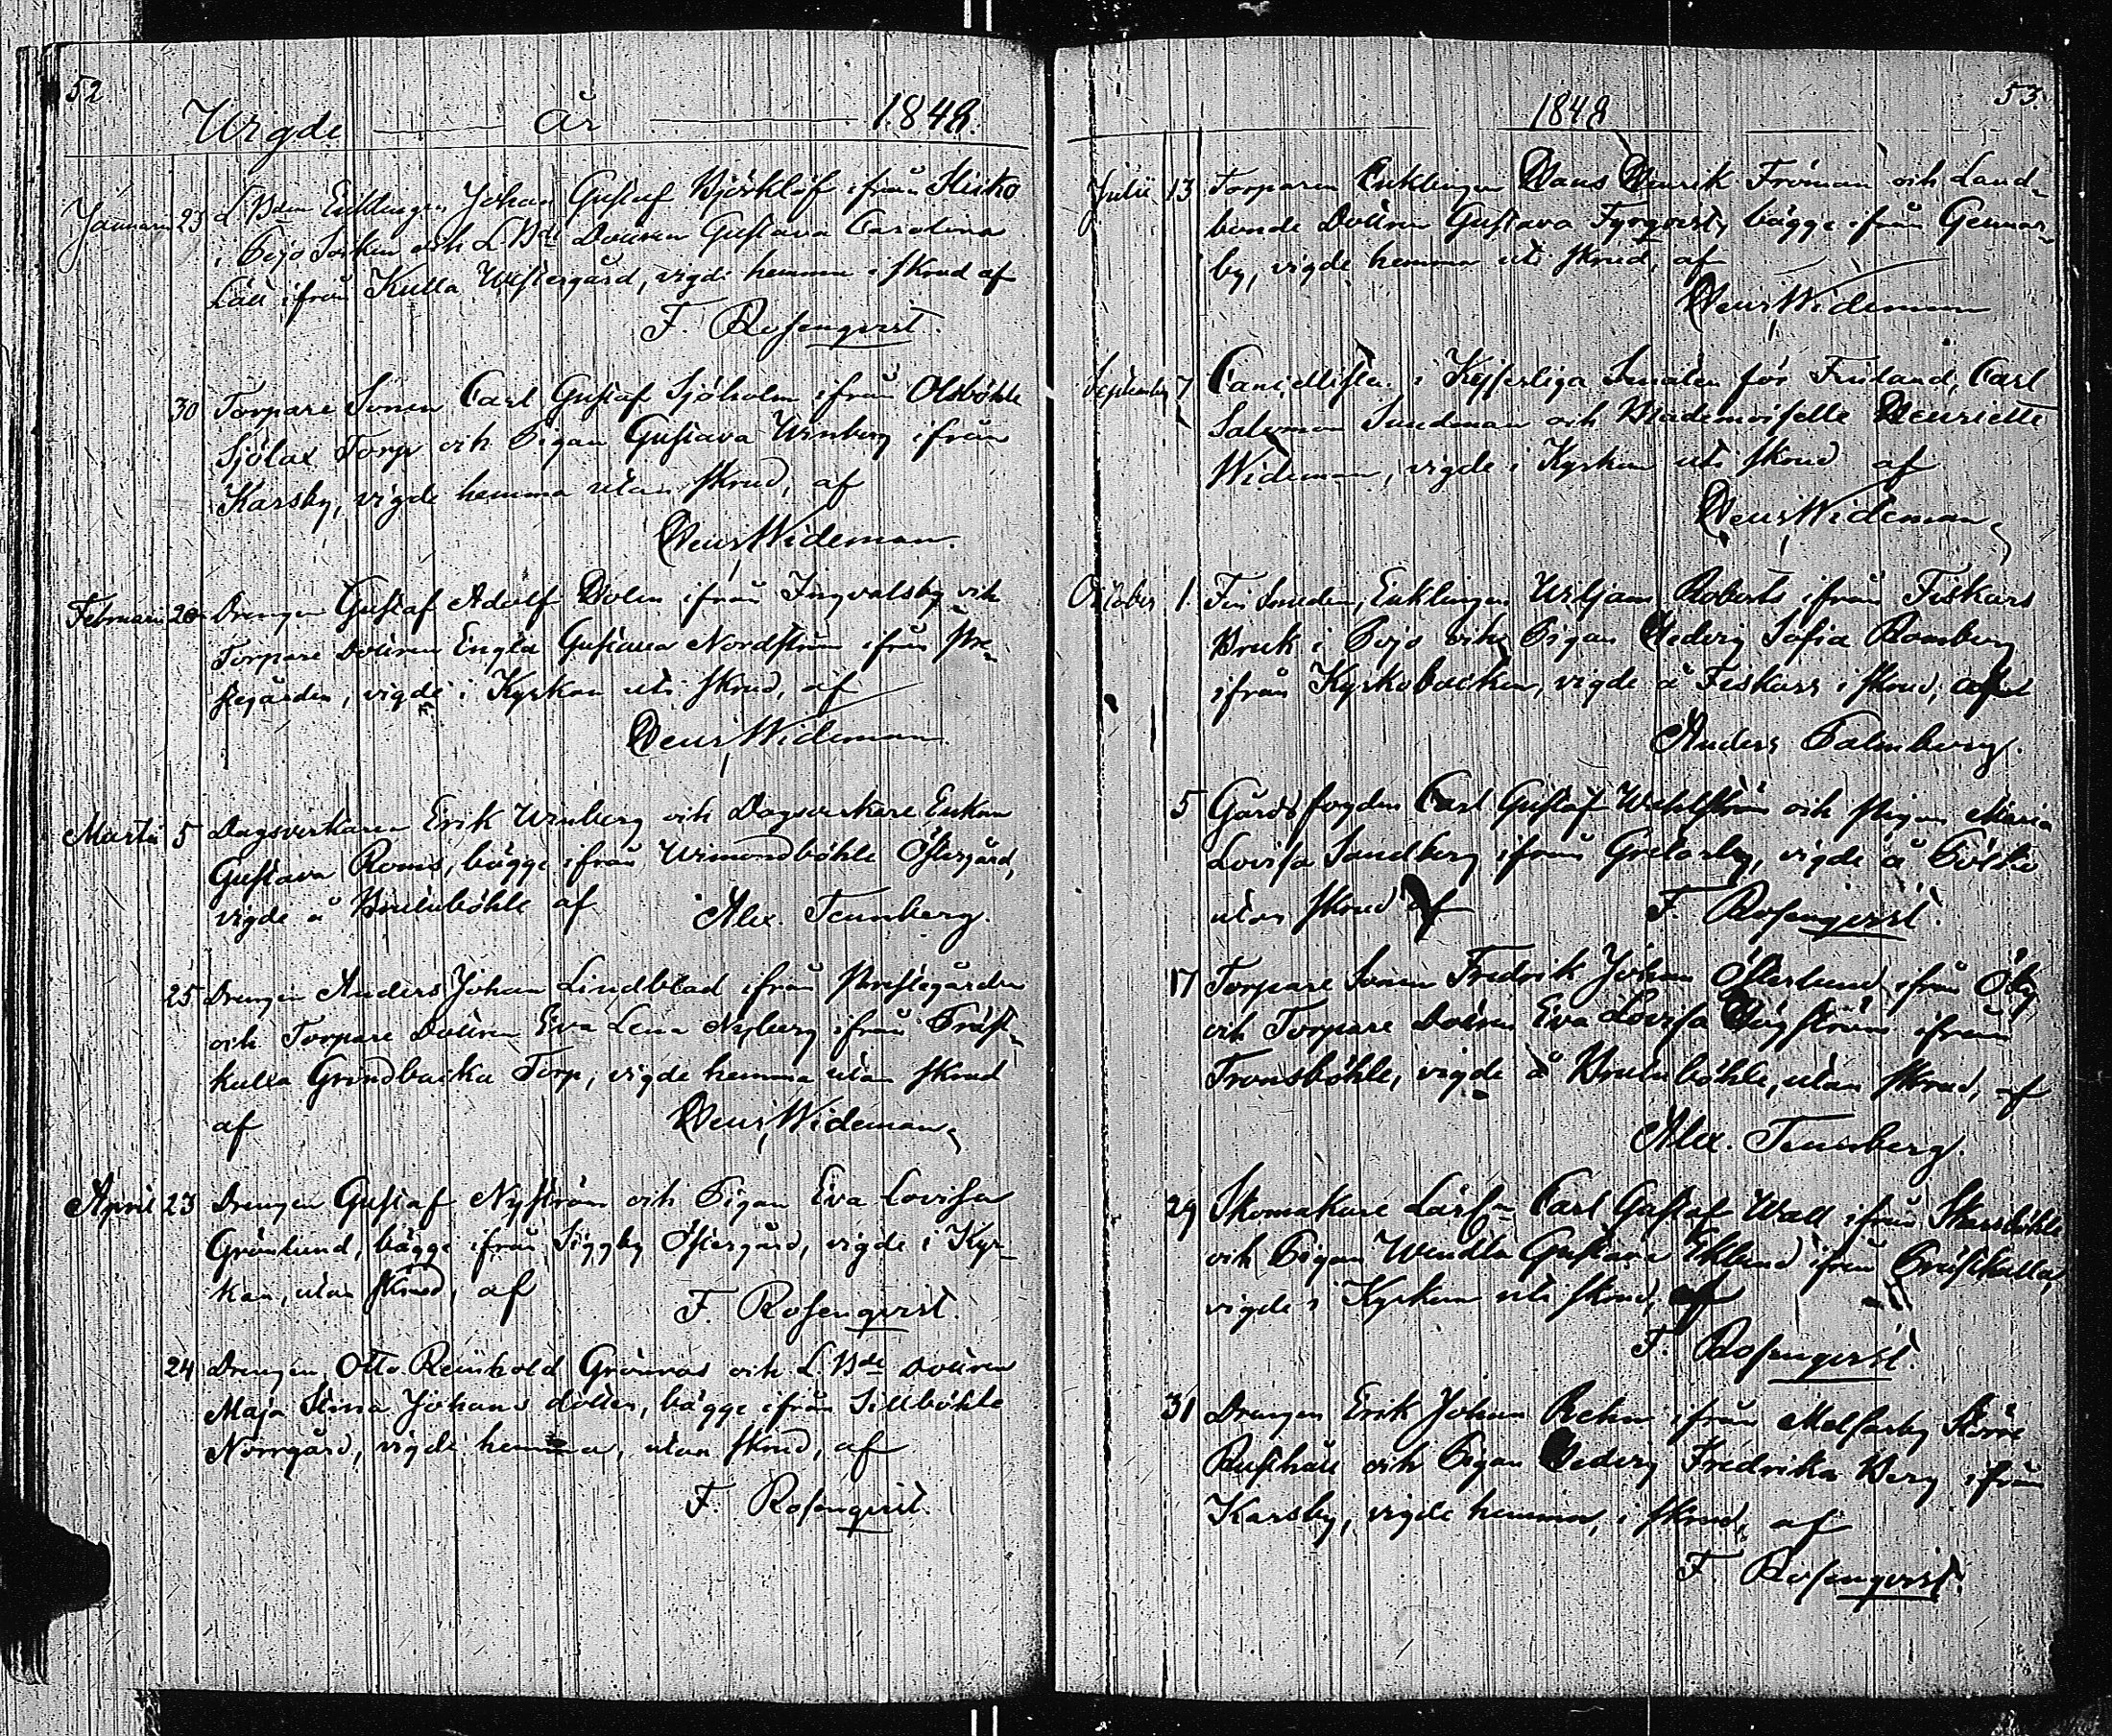 52.
Wigde år 1848.
Januarii 23 LBden Enklingen Johan Gustaf Björklöf ifrån Skisko
i Pojo Socken och LBde Dottren Gustava Carolina
Läll ifrån Kulla Westergård, vigde hemma i skrud af
F. Rosenqvist.
30 Torpare Sonen Carl Gustaf Sjöholm ifrån Olsböhle
Sjölax Torp och Pigan Gustava Winberg ifrån
Karsby, vigde hemma utan skrud, af
Henr Wideman.
Februari 20 Drengen Gustaf Adolf Holm ifrån Ingvalsby och
Torpare Dottren Engla Gustava Nordström ifrån Pre-
stegården, vigde i Kyrkan uti skrud, af
Henr Wideman.
Martii 5 Dagsverkaren Erik Winberg och Dagsverkare Enkan
Gustava Roms, bägge ifrån Wimondböhle Östergård,
vigde å Brutuböhle af Alex. Tennberg.
25 Drengen Anders Johan Lindblad ifrån Prestegården
och Torpare Dottren Eva Lena Nyberg ifrån Präst-
kulla Grindbacka Torp, vigde hemma utan skrud
af Henr Wideman
April 23 Drengen Gustaf Nyström och Pigan Eva Lovisa
Grönlund, bägge ifrån Siggby Östergård, vigde i Kyr-
kan, utan skrud, af F. Rosenqvist.
24 Drengen Otto Reinhold Grönroos och L.Bde Dottren
Maja Stina Johans dotter, bägge ifrån Sillböhle
Norrgård, vigde hemma, utan skrud, af
F. Rosenqvist.
53.
1848
Julii 13 Torparen Enklingen Hans Henrik Fröman och Land-
bonde Dottren Gustava Fyrqvist, bägge ifrån Gennar-
by, vigde hemma uti skrud, af
Henr Wideman
September 7 Cancellisten i Kejserliga Senaten för Finland, Carl
Salomon Sundman och Mademoiselle Henriette
Wideman, vigde i Kyrkan uti skrud af
Henr Wideman
October 1. Fin Smeden, Enklingen Wiljam Roberts ifrån Fiskars
Bruk i Pojo och Pigan Hedvig Sofia Romberg
ifrån Kyrkobacken, vigde å Fiskars i skrud, af
Anders Palmberg.
5 Gårdsfogden Carl Gustaf Wahlström och Pigan Maria
Lovisa Sandberg ifrån Gretarby, vigde å
utan skrud af F. Rosenqvist.
17 Torpare Sonen Fredrik Johan Österlund ifrån Öby
och Torpare Dottren Eva Lovisa Högström ifrån
Tronsböhle, vigde å Brutuböhle, utan skrud, af
Alex. Tennberg.
29 Skomakare Lärln Carl Gustaf Wall ifrån Skarsböhle
och Pigan Wendla Gustava Eklund ifrån Prästkulla,
vigde i Kyrkan uti skrud, af
F. Rosenqvist.
31 Drengen Erik Johan Rehn ifrån Melsarby Störve
Rusthåll och Pigan Hedvig Fredrika Berg ifrån
Karsby, vigde hemma, i skrud, af
F Rosenqvist.